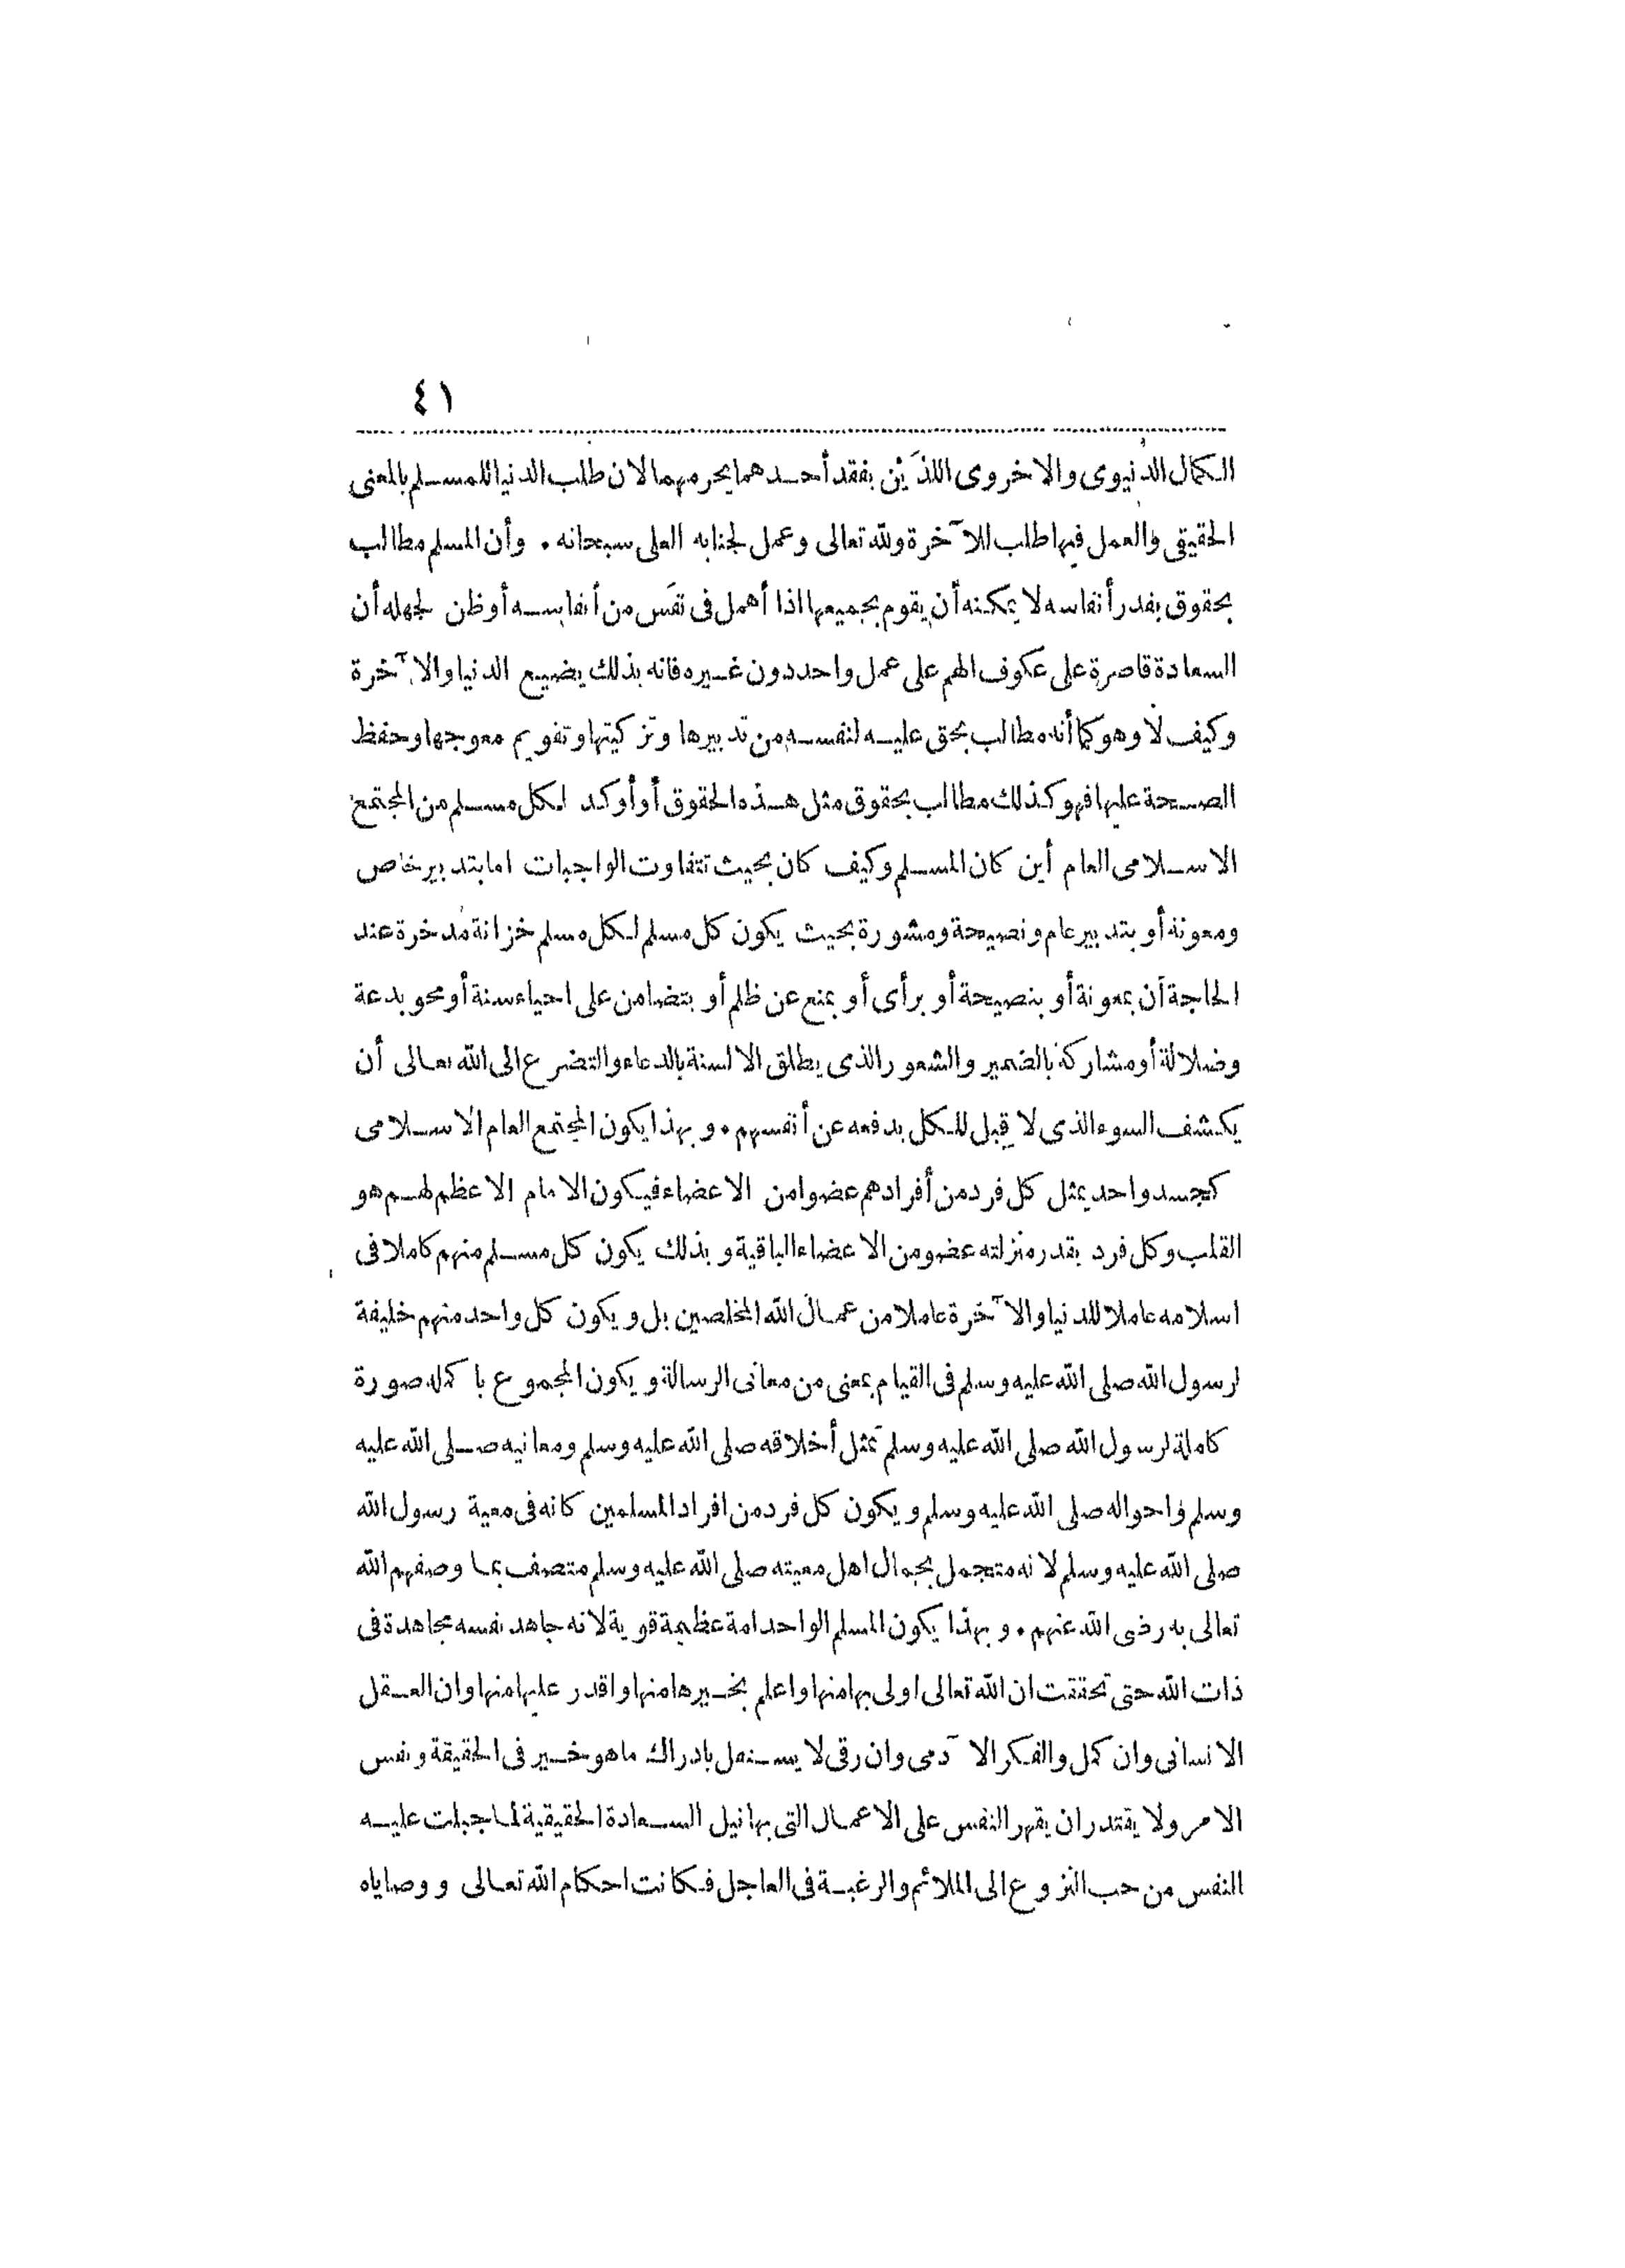 ٤١
الكمال الدنيوى والاخروى اللذَين بفقد أحدهما يحرمهما لان طلب الدنيا للمسلم بالمعنى
الحقيقى والعمل فيها طلب للآخرة ولله تعالى وعمل لجنابه العلى سبحانه . وأن المسلم مطالب
بحقوق بقدر أنفاسه لا يمكنه أن يقوم بجميعها اذا أهمل فى نَفَس من أنفاسه أوظن لجهله أن
السعادة قاصرة على عكوف الهم على عمل واحد دون غيره فانه بذلك يضيع الدنيا والآخرة
وكيف لا وهو كما أنه مطالب بحق عليه لنفسه من تدبيرها وتزكيتها وتقويم معوجها وحفظ
الصحة عليها فهو كذلك مطالب بحقوق مثل هذه الحقوق أو أوكد لكل مسلم من المجتمع
الاسلامى العام أين كان المسلم وكيف كان بحيث تتفاوت الواجبات اما بتدبير خاص
ومعونة أو بتدبير عام ونصيحة ومشورة بحيث يكون كل مسلم لكل مسلم خزانة مدخرة عند
الحاجة ان بمعونة أو بنصيحة أو برأى أو بمنع عن ظلم أو بتضامن على احياء سنة أو محو بدعة
وضلالة أو مشاركة بالضمير والشعور الذى يطلق الالسنة بالدعاء والتضرع الى الله تعالى أن
يكشف السوء الذى لا قِبل للكل بدفعه عن أنفسهم . وبهذا يكون المجتمع العام الاسلامى
كجسد واحد يمثل كل فرد من أفرادهم عضوا من الاعضاء فيكون الامام الاعظم لهم هو
القلب وكل فرد بقدر منزلته عضو من الاعضاء الباقية وبذلك يكون كل مسلم منهم كاملا فى
اسلامه عاملا للدنيا والآخرة عاملا من عمال الله المخلصين بل ويكون كل واحد منهم خليفة
لرسول الله صلى الله عليه وسلم فى القيام بمعنى من معانى الرسالة ويكون المجموع باكمله صورة
كاملة لرسول الله صلى الله عليه وسلم تمثل أخلاقه صلى الله عليه وسلم ومعانيه صلى الله عليه
وسلم واحواله صلى الله عليه وسلم ويكون كل فرد من افراد المسلمين كانه فى معية رسول الله
صلى الله عليه وسلم لانه متجمل بجمال اهل معيته صلى الله عليه وسلم متصف بما وصفهم الله
تعالى به رضى الله عنهم . وبهذا يكون المسلم الواحد امة عظيمة قوية لانه جاهد نفسه مجاهدة فى
ذات الله حتى تحققت ان الله تعالى اولى بها منها واعلم بخيرها منها واقدر عليها منها وان العقل
الانسانى وان كمل والفكر الآدمى وان رقى لا يستقل بادراك ما هو خير فى الحقيقة ونفس
الامر ولا يقتدر ان يقهر النفس على الاعمال التى بها نيل السعادة الحقيقية لما جبلت عليه
النفس من حب النزوع الى الملائم والرغبة فى العاجل فكانت احكام الله تعالى ووصاياه